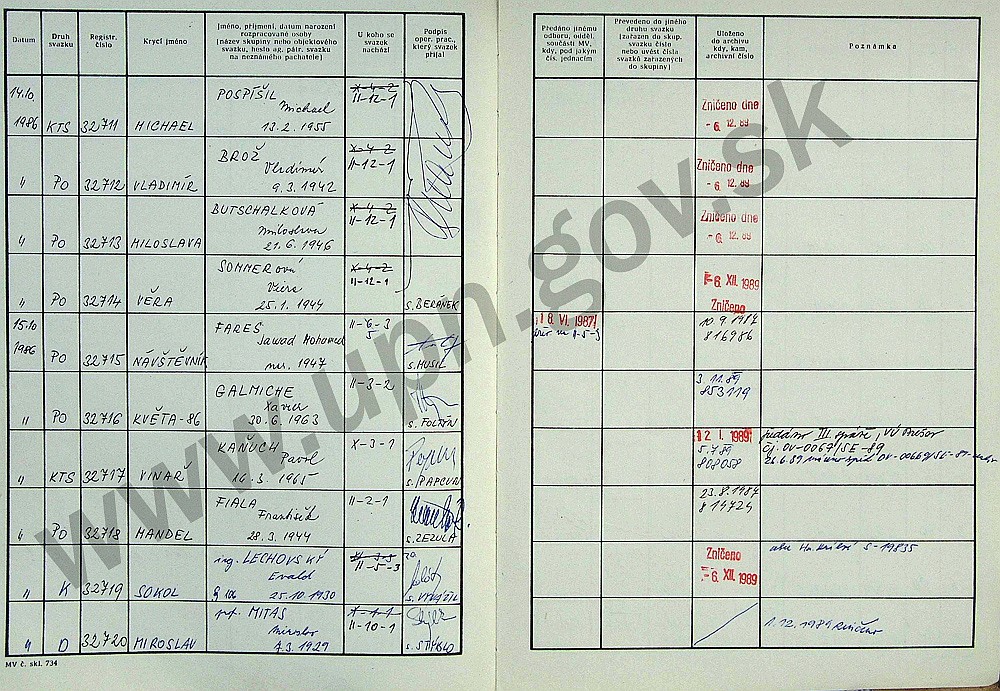 Datum
Druh svazku
Registr. číslo
Krycí jméno
Jméno, příjmení, datum narození rozpracované osoby (název skupiny nebo objektového svazku, heslo ag. pátr. svazku na neznámého pachatele)
U koho se svazek nachází
Podpis oper. prac., který svazek přijal
Předáno jinému odboru, odděl. součásti MV, kdy, pod jakým čís. jednacím
Převedeno do jiného druhu svazku (zařazen do skup. svazku číslo nebo uvést čísla svazků zařazených do skupiny)
Uloženo do archivu kdy, kam, archivní číslo
Poznámka
14.10. 1986 KTS 32711 MICHAEL
POSPÍŠIL
Michael
13.2.1955
X-4-2
II-12-1
Zničeno dne
-6. 12. 89
" PO 32712 VLADIMÍR
BROŽ
Vladimír
9.3.1942
X-4-2
II-12-1
Zničeno dne
-6. 12. 89
" PO 32713 MILOSLAVA
BUTSCHALKOVÁ
Miloslava
21.6.1946
X-4-2
II-12-1
Zničeno dne
-6. 12. 89
" PO 32714 VĚRA
SOMMEROVÁ
Věra
25.1.1944
X-4-2
II-12-1
s. BERÁNEK
-6. XII. 1989
Zničeno
15.10 1986 PO 32715 NÁVŠTĚVNÍK
FARES
Jawad Mohamed
nar. 1947
II-6-3
5
s. MUSIL
18. VI. 1987
10.9.1987
816986
" PO 32716 KVĚTA-86
GALMICHE
Xavier
30.6.1963
II-3-2
s. FOLTÝN
3.11.89
853119
" KTS 32717 VINAŘ
KAŇUCH
Pavol
16.3.1965
X-3-1
s. PAPCUN
12. I. 1989
5.7.89
808058
předáno III. správě, VÚ
čj. OV-0067/SE-89
" PO 32718 MANDEL
FIALA
František
28.3.1944
II-2-1
s. ZEZULA
23.8.1987
814724
" K 32719 SOKOL
ing. LECHOVSKÝ
Evald
25.10.1930
II-5-3
Zničeno
-6. XII. 1989
S-19835
" D 32720 MIROSLAV
MITAS
Miroslav
4.3.1929
X-1-1
II-10-1
s. STÝBLO
1.12.1989
MV č. skl. 734
www.upn.gov.sk